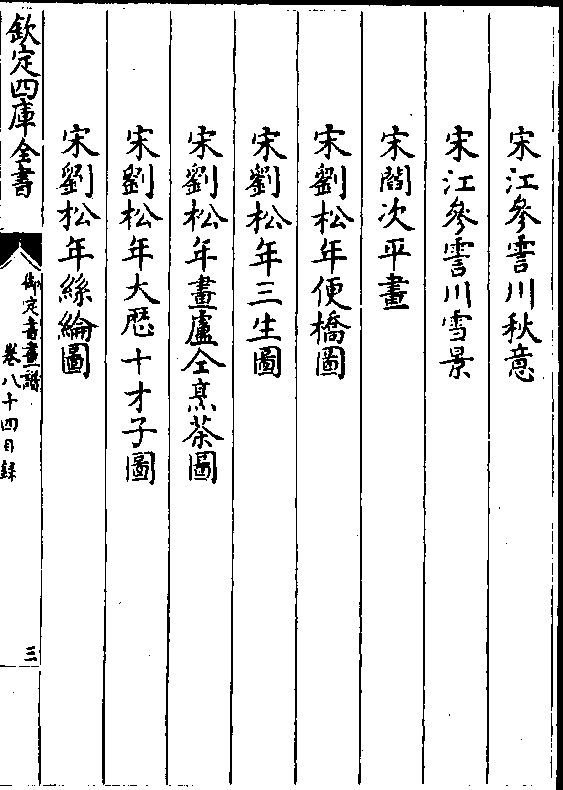 宋江參霅川秋意
宋江參霅川雪景
宋閻次平畫
宋劉松年便橋圖
宋劉松年三生圖
宋劉松年畫盧仝烹茶圖
宋劉松年大厯十才子圖
宋劉松年絲綸圖
欽定四庫全書
御定書畫譜
卷八十四目錄
三